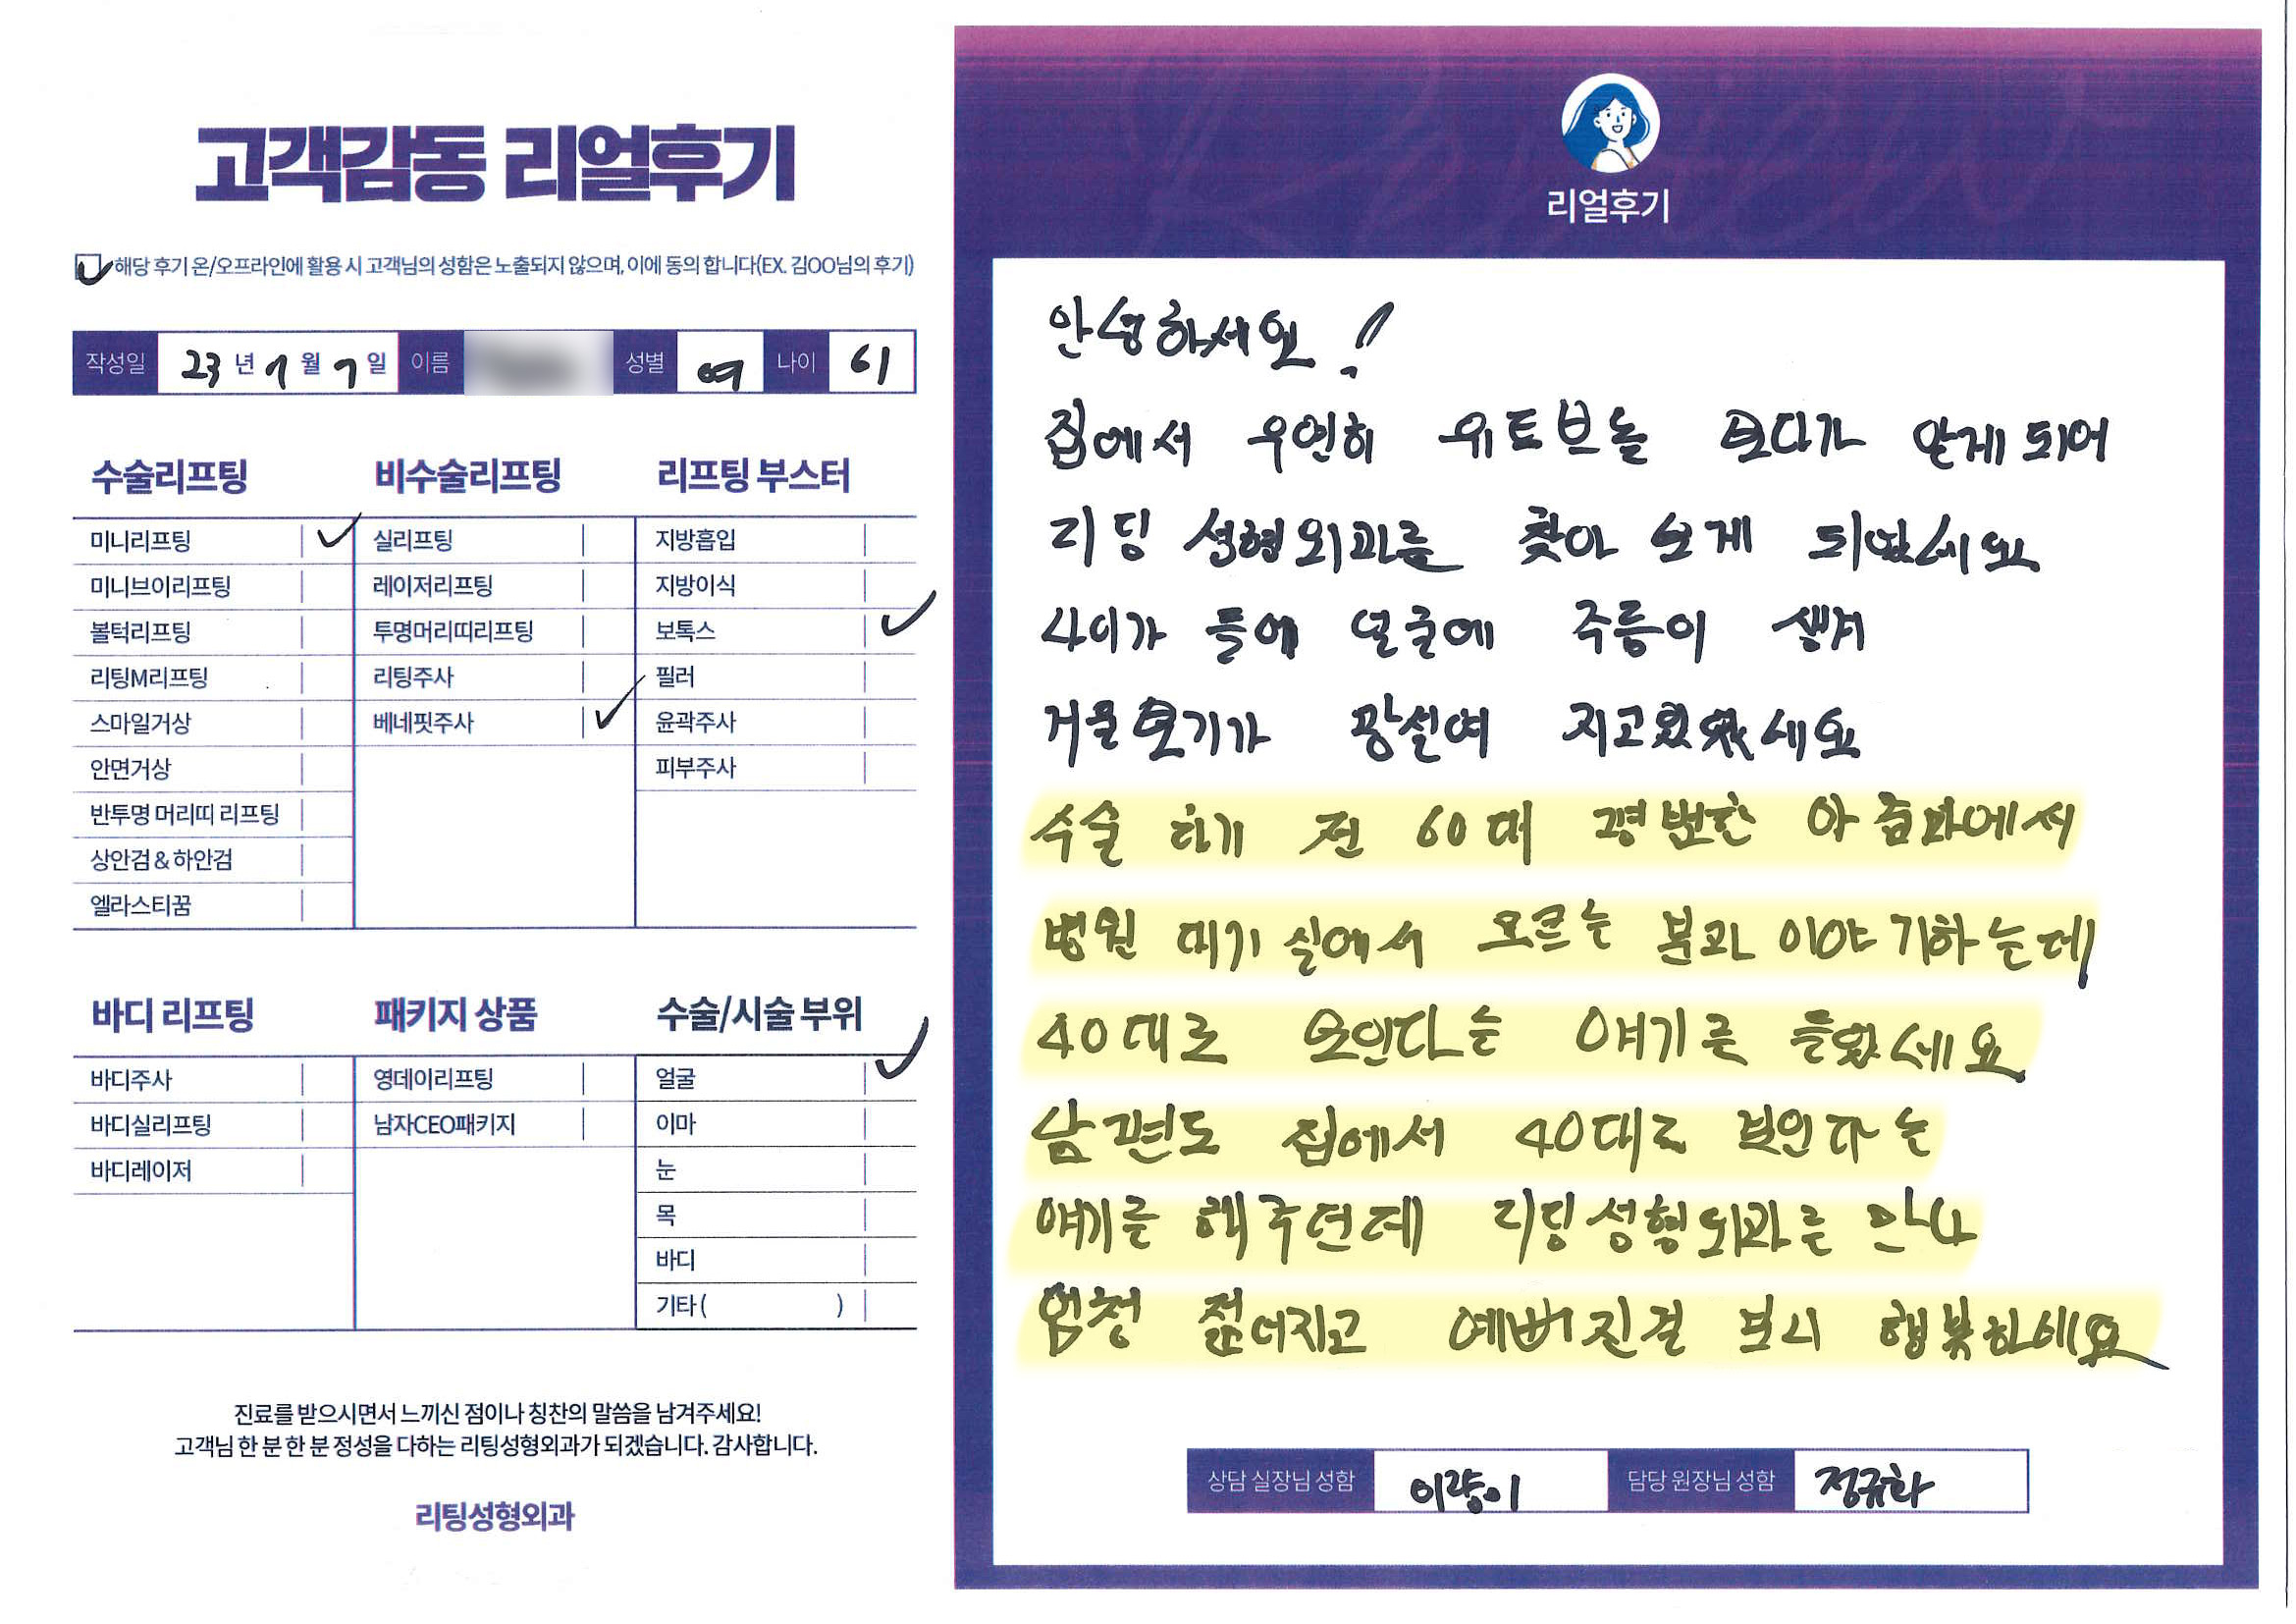 고객감동 리얼후기
해당 후기 온/오프라인에 활용 시 고객님의 성함은 노출되지 않으며, 이에 동의 합니다(EX. 김OO님의 후기)
작성일 23년 7월 7일 이름 성별 여 나이 61
수술리프팅
미니리프팅
미니브이리프팅
볼턱리프팅
리팅M리프팅
스마일거상
안면거상
반투명 머리띠 리프팅
상안검 & 하안검
엘라스티꿈
비수술리프팅
실리프팅
레이저리프팅
투명머리띠리프팅
리팅주사
베네핏주사
리프팅 부스터
지방흡입
지방이식
보톡스
필러
윤곽주사
피부주사
바디 리프팅
바디주사
바디실리프팅
바디레이저
패키지 상품
영데이리프팅
남자CEO패키지
수술/시술 부위
얼굴
이마
눈
목
바디
기타 ( )
진료를 받으시면서 느끼신 점이나 칭찬의 말씀을 남겨주세요!
고객님 한 분 한 분 정성을 다하는 리팅성형외과가 되겠습니다. 감사합니다.
리팅성형외과
리얼후기
안녕하세요!
집에서 우연히 유트브를 보다가 알게 되어
리팅 성형외과를 찾아 오게 되었세요
나이가 들에 얼굴에 주름이 생겨
거울보기가 지고있었세요
수술 하기 전 60대 평범한 아줌마에서
병원 대기실에서 모르는 분과 이야기하는데
40대로 보인다는 얘기를 들었세요
남편도 집에서 40대로 보인다는
얘기를 해주던데 리팅성형외과를 만나
엄청 젊어지고 예뻐진걸 보니 행복하세요
상담 실장님 성함 담당 원장님 성함 정규화